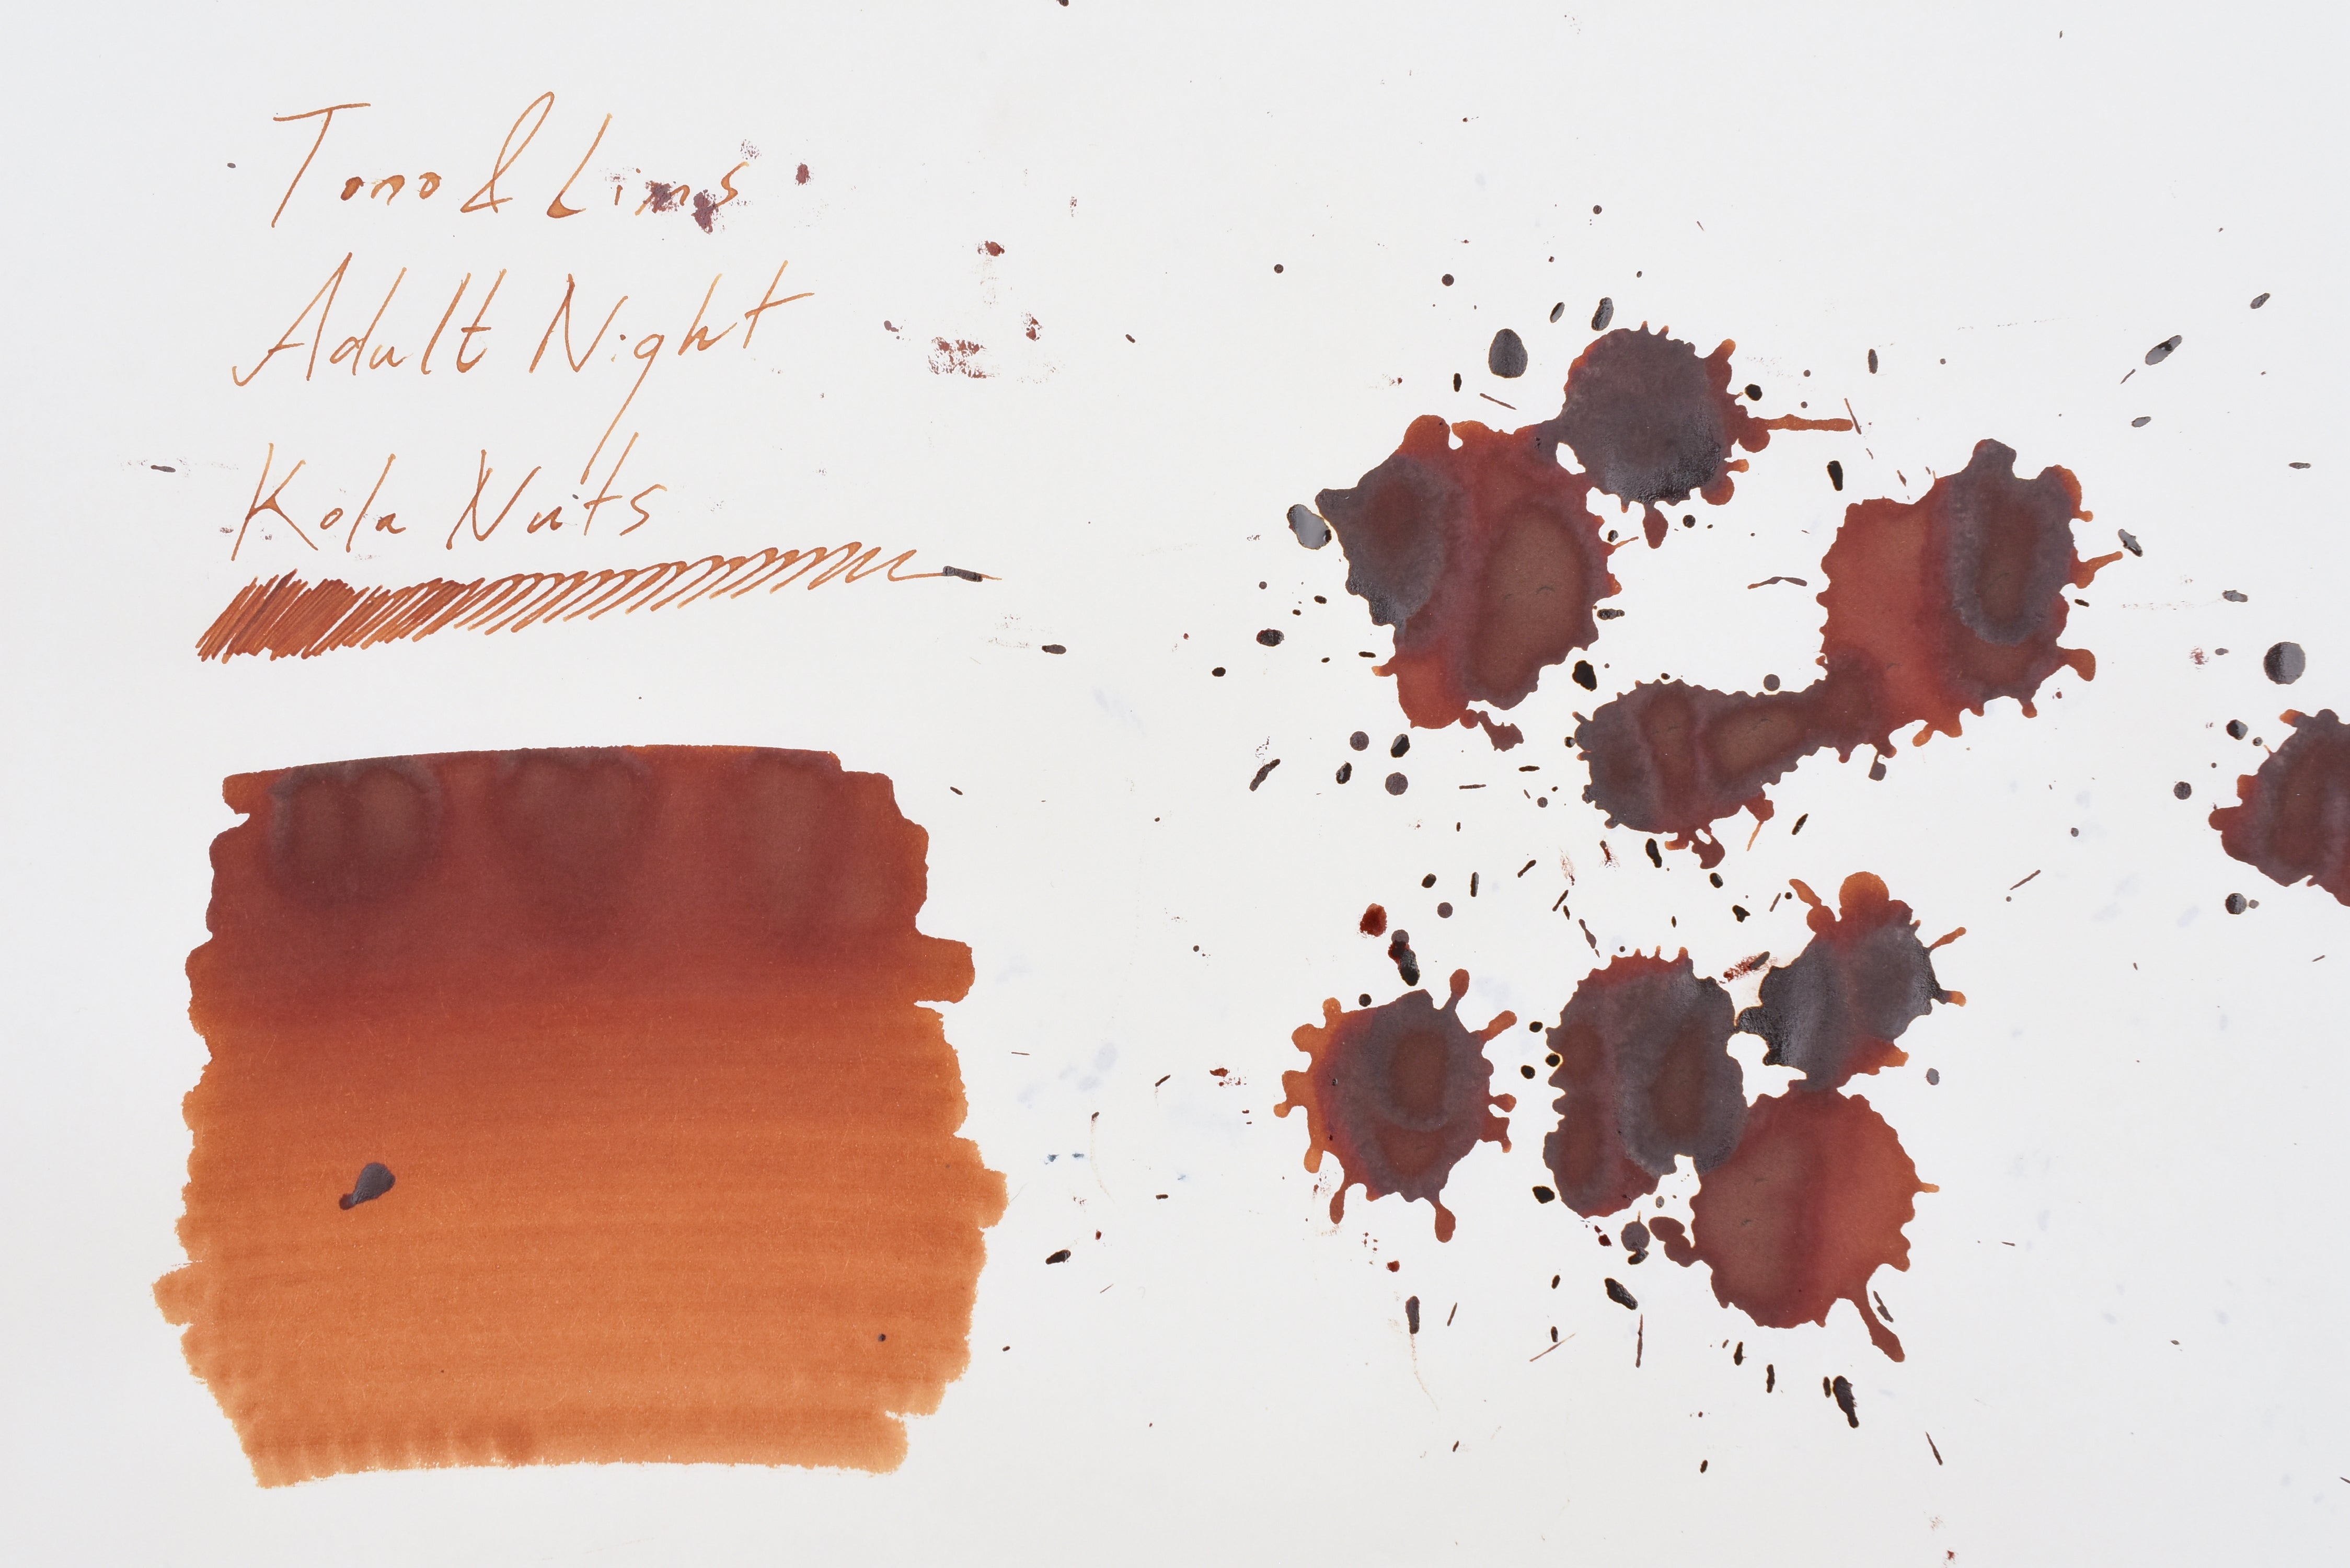 Tono & Lims
Adult Night
Kola Nuts